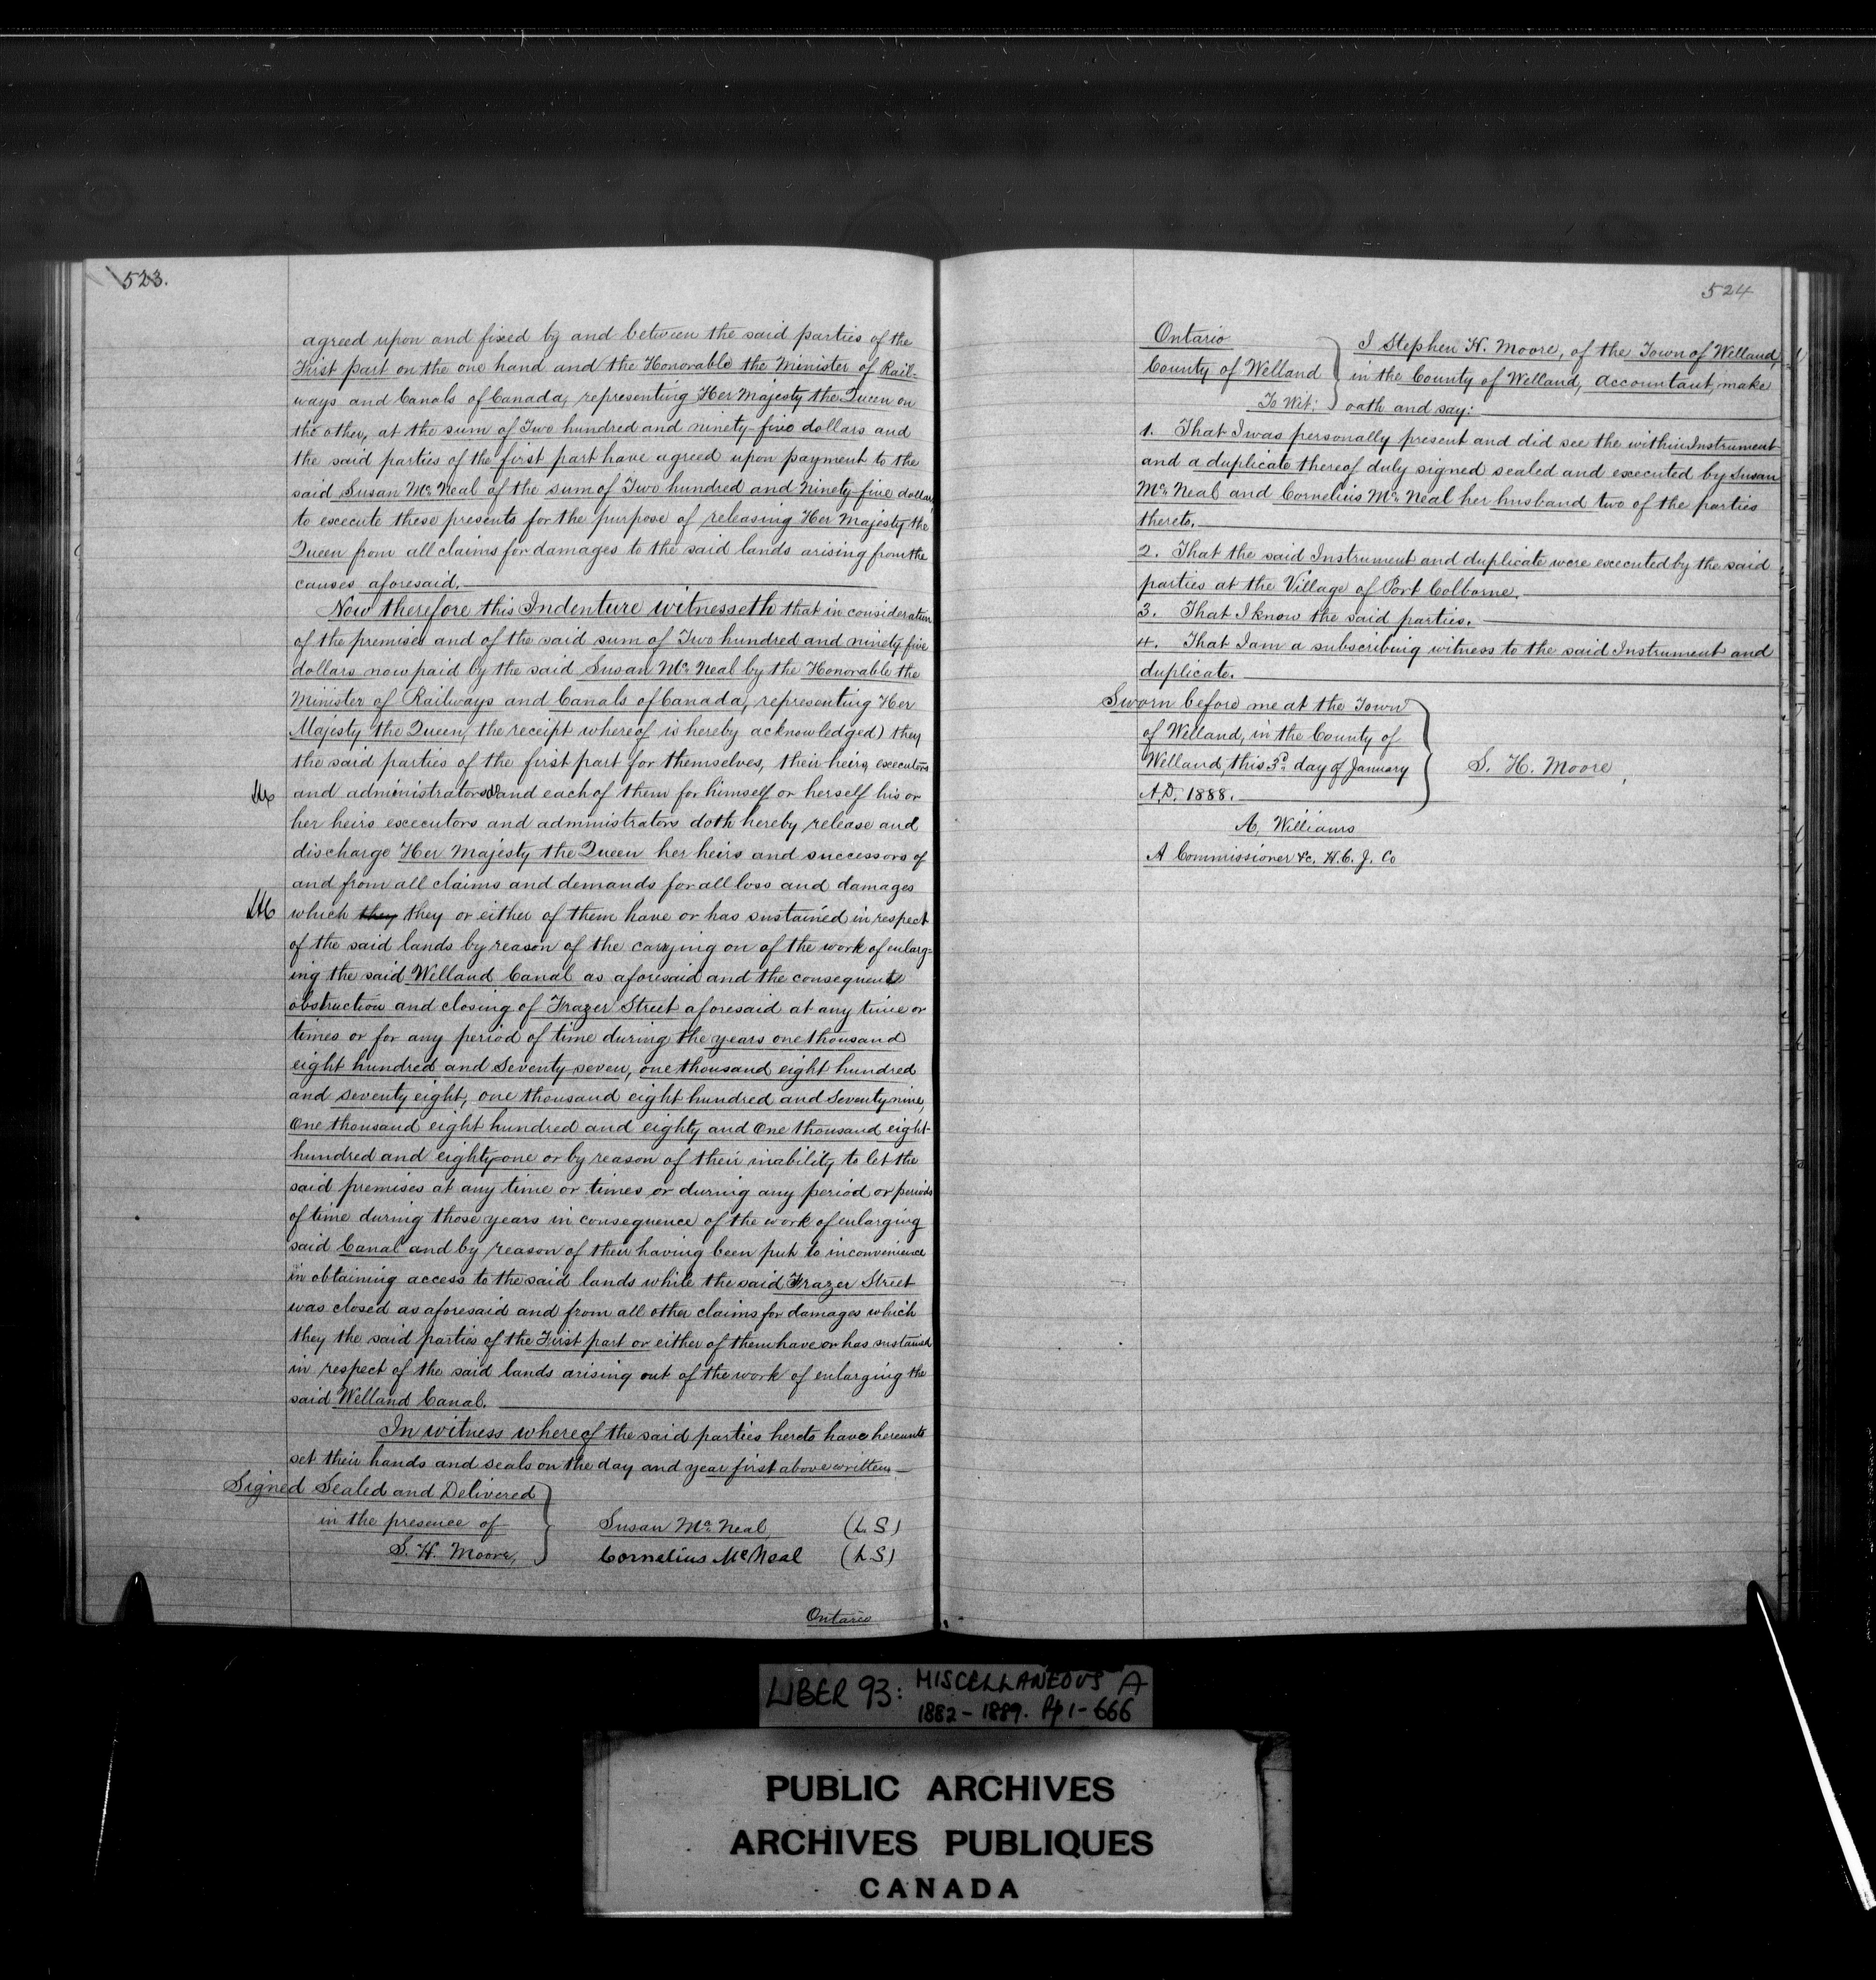 523.
agreed upon and fixed by and between the said parties of the
First part on the one hand and the Honorable the Minister of Rail-
ways and Canals of Canada, representing Her Majesty the Queen on
the other, at the sum of Two hundred and ninety-five dollars and
the said parties of the first part have agreed upon payment to the
said Susan McNeal of the sum of Two hundred and Ninety-five dollars,
to execute these presents for the purpose of releasing Her Majesty the
Queen from all claims for damages to the said lands arising from the
causes aforesaid.
Now therefore this Indenture witnesseth that in consideration
of the premises and of the said sum of Two hundred and ninety five
dollars now paid by the said Susan McNeal by the Honorable the
Minister of Railways and Canals of Canada, representing Her
Majesty the Queen, the receipt whereof is hereby acknowledged) they
the said parties of the first part for themselves, their heirs, executors
and administrators and each of them for himself or herself his or
her heirs executors and administrators doth hereby release and
discharge Her Majesty the Queen her heirs and successors of
and from all claims and demands for all loss and damages
which they they or either of them have or has sustained in respect
of the said lands by reason of the carrying on of the work of enlarg-
ing the said Welland Canal as aforesaid and the consequent
obstruction and closing of Frazer Street aforesaid at any time or
times or for any period of time during the years one thousand
eight hundred and Seventy-seven, one thousand eight hundred
and seventy eight, one thousand eight hundred and Seventy nine,
One thousand eight hundred and eighty and One thousand eight-
hundred and eighty-one or by reason of their inability to let the
said premises at any time or times or during any period or periods
of time during those years in consequence of the work of enlarging
said Canal and by reason of their having been put to inconvenience
in obtaining access to the said lands while the said Frazer Street
was closed as aforesaid and from all other claims for damages which
they the said parties of the First part or either of them have or has sustained
in respect of the said lands arising out of the work of enlarging the
said Welland Canal.
In witness whereof the said parties hereto have hereunto
set their hands and seals on the day and year first above written
Signed Sealed and Delivered
in the presence of
S. H. Moore,
Susan McNeal (L.S)
Cornelius McNeal (L.S)
Ontario
524
Ontario
County of Welland
To Wit:
I Stephen H. Moore, of the Town of Welland,
in the County of Welland, Accountant, make
oath and say:
1. That I was personally present and did see the within Instrument
and a duplicate thereof duly signed sealed and executed by Susan
McNeal and Cornelius McNeal her husband two of the parties
thereto.
2. That the said Instrument and duplicate were executed by the said
parties at the Village of Port Colborne.
3. That I know the said parties.
4. That I am a subscribing witness to the said Instrument and
duplicate.
Sworn before me at the Town
of Welland, in the County of
Welland, this 3d day of January
A.D. 1888.
S. H. Moore,
A, Williams
A Commissioner &c. H.C.J. Co
LIBER 93: MISCELLANEOUS A
1882-1889. Pp 1-666
PUBLIC ARCHIVES
ARCHIVES PUBLIQUES
CANADA